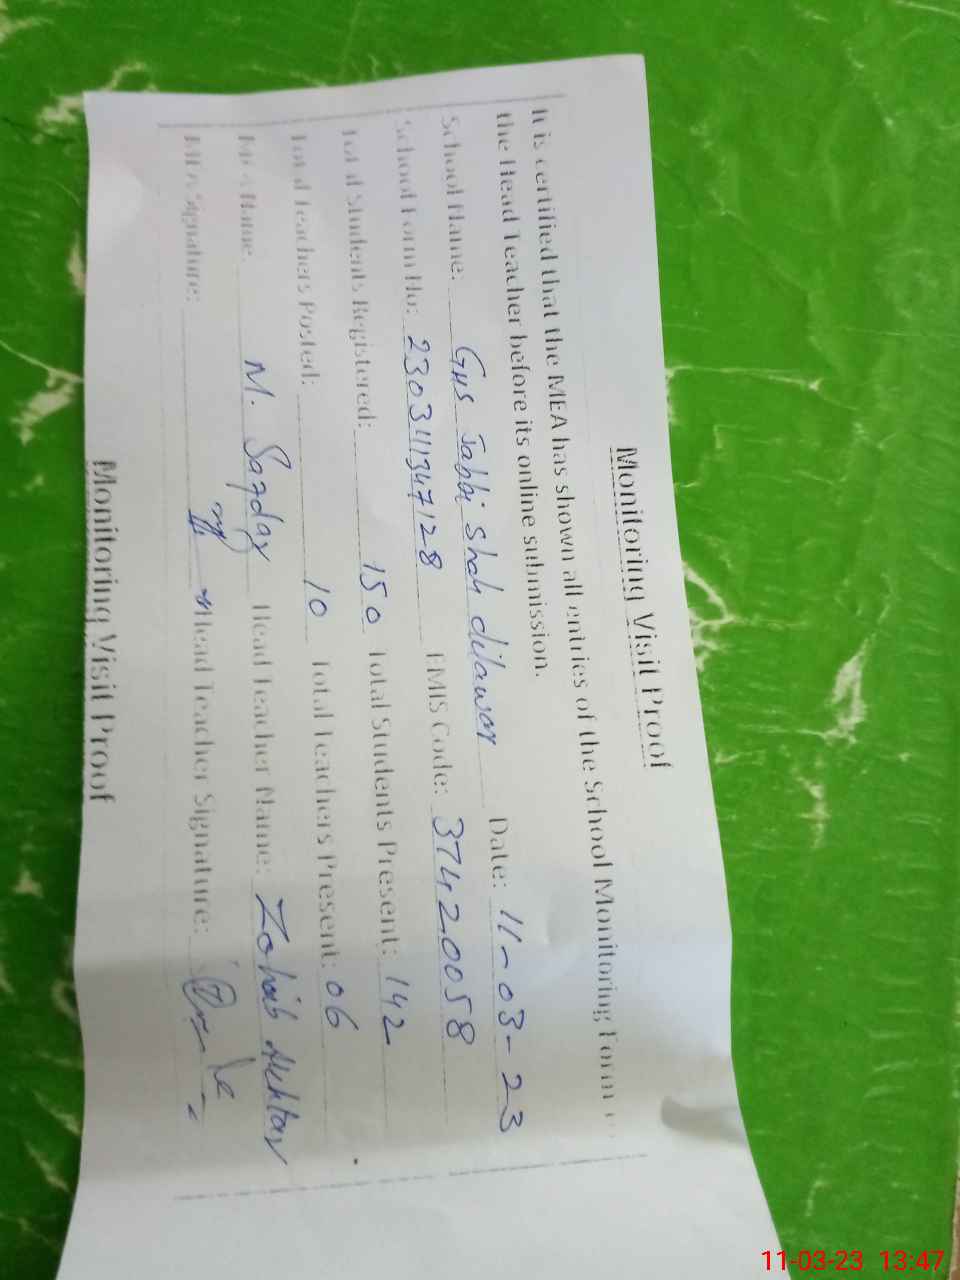 Monitoring Visit Proof
It is certified that the MEA has shown all entries of the School Monitoring Form
the Head Teacher before its online submission.
School Name: GHS Jabbi Shah dilawar Date: 11-03-23
School Form No: 2303111347128 EMIS Code: 37420058
Total Students Registered: 150 Total Students Present: 142
Total Teachers Posted: 10 Total Teachers Present: 06
MEA Name: M. Safdar Head Teacher Name: Zohaib Akhtar
MEA Signature: Head Teacher Signature:
Monitoring Visit Proof
11-03-23 13:47